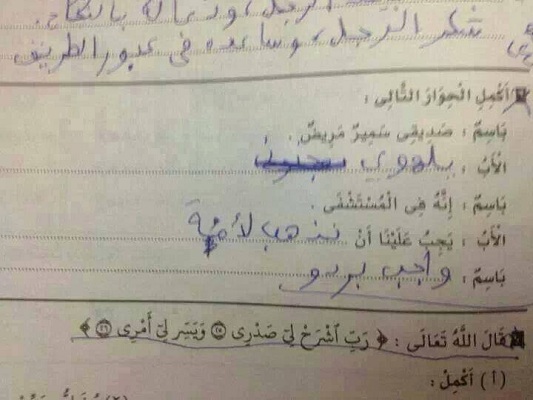 الرجل، ودعا له بالنجاح.
شكر الرجل، وساعده في عبور الطريق
أَكْمِلِ الْحِوَارَ التَّالِى :
بَاسِمٌ : صَدِيقِى سَمِيرٌ مَرِيضٌ .
الْأَبُ : يلهوي
بَاسِمٌ : إِنَّهُ فِى الْمُسْتَشْفَى .
الْأَبُ : يَجِبُ عَلَيْنَا أَنْ نذهب لأمة
بَاسِمٌ : واجب بردو
قَالَ اللَّهُ تَعَالَى : ﴿ رَبِّ ٱشْرَحْ لِى صَدْرِى ۝٢٥ وَيَسِّرْ لِىٓ أَمْرِى ۝٢٦ ﴾
( أ ) أَكْمِلْ :